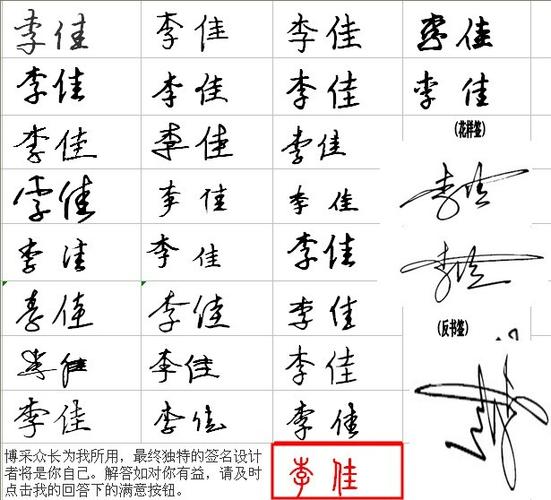 李佳 李佳 李佳 李佳
李佳 李佳 李佳 李佳
(花样签)
李佳 李佳 李佳
李佳 李佳 李佳 李佳
李佳 李佳 李佳 李佳
(反书签)
李佳 李佳 李佳
李佳 李佳 李佳
李佳 李佳 李佳
博采众长为我所用，最终独特的签名设计
者将是你自己。解答如对你有益，请及时
点击我的回答下的满意按钮。
李佳